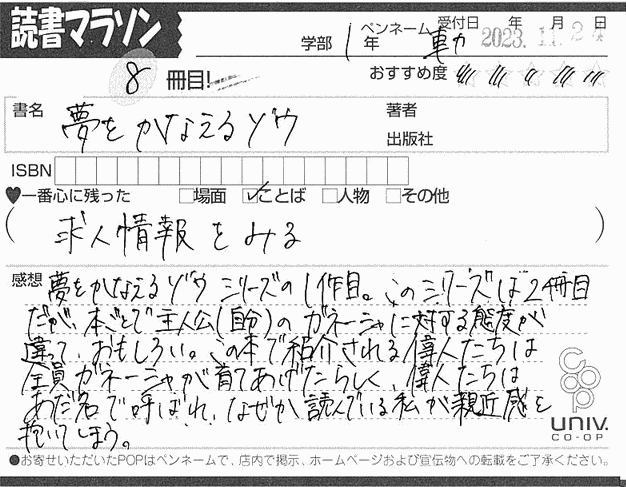 読書マラソン
学部 1年 ペンネーム 受付日 年 月 日
2023.11.24
8 冊目!
おすすめ度 ☆☆☆☆☆
書名 夢をかなえるゾウ
著者
出版社
ISBN
♥一番心に残った □場面 ☑ことば □人物 □その他
(求人情報をみる)
感想 夢をかなえるゾウシリーズの1作目。このシリーズは2冊目
だが、本ごとで主人公(自分)のガネーシャに対する態度が
違って、おもしろい。この本で紹介される偉人たちは
全員ガネーシャが育てあげたらしく、偉人たちは
あだ名で呼ばれ、なぜか読んでいる私が親近感を
抱いてしまう。
coop
UNIV.
CO-OP
●お寄せいただいたPOPはペンネームで、店内で掲示、ホームページおよび宣伝物への転載をご了承ください。